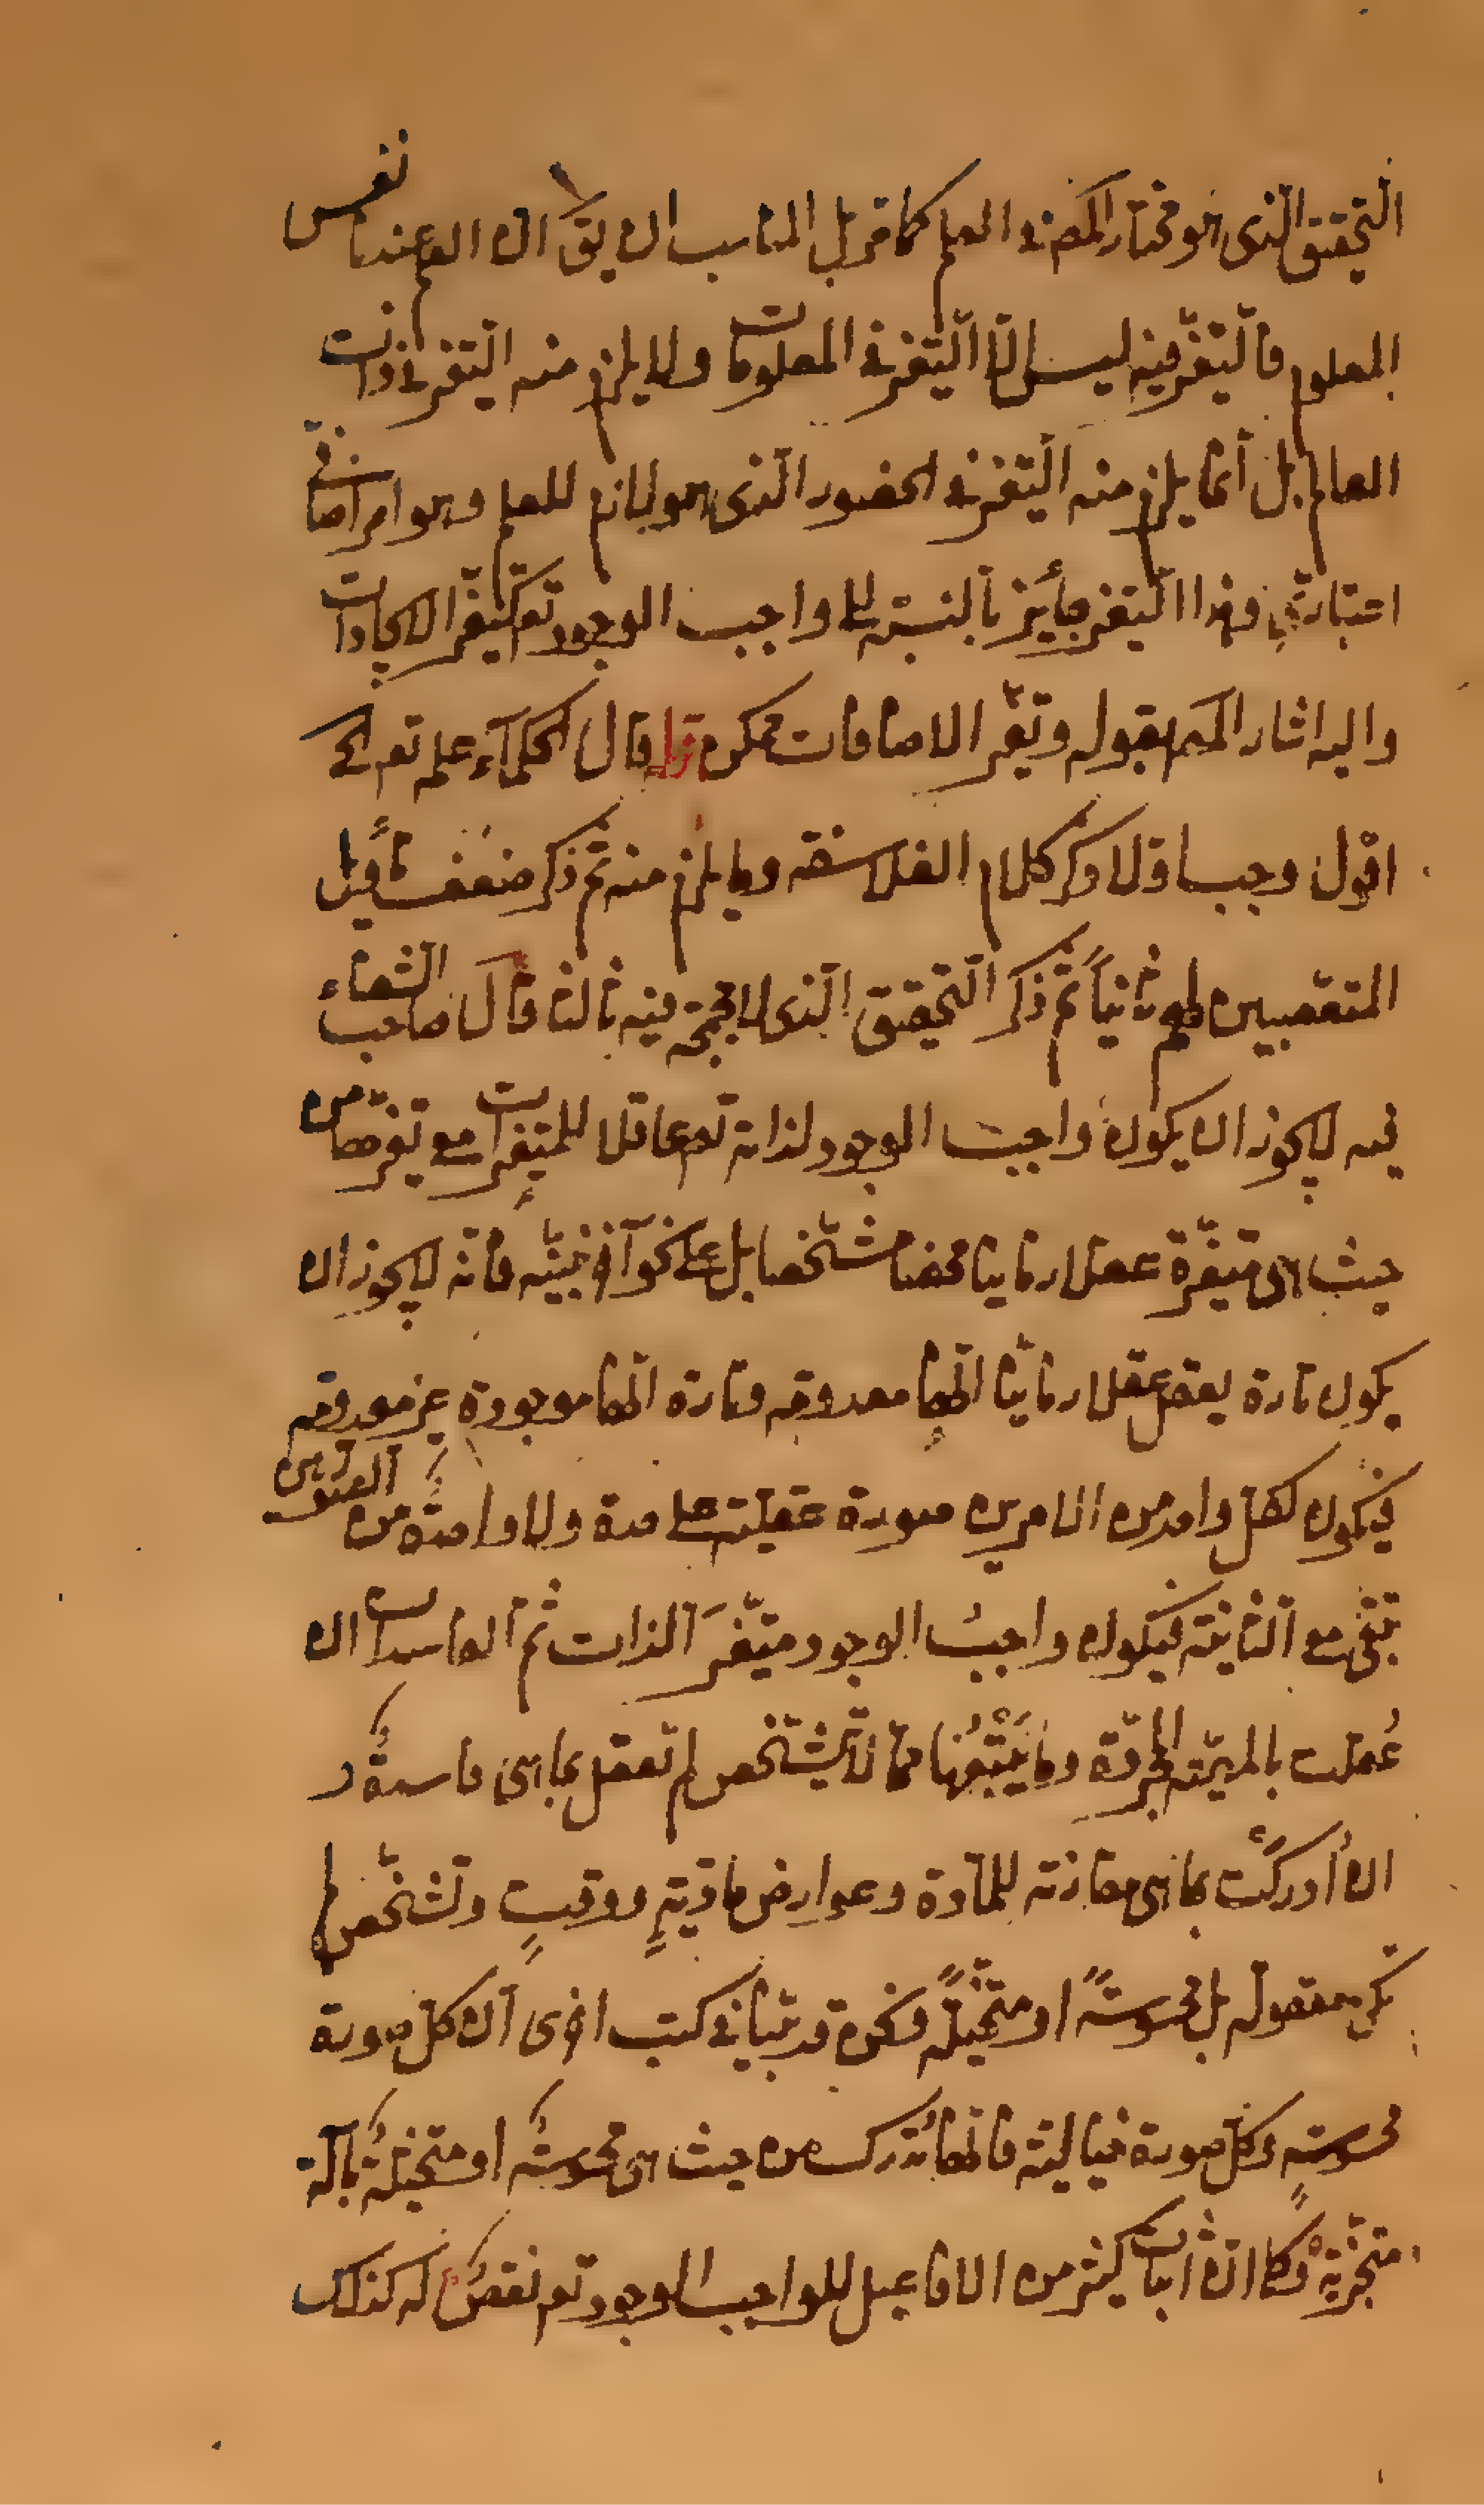 التحقيق الذى هو مختار المص فى العلم كما مر بل المناسب ان يقّ ان العلم عندنا نفس
المعلوم فالتغيّر فيه ليس الّا التّغير فى المعلومات ولا يلزم منه التّغير فى ذات
العالم بل انّما يلزم منه التّغير فى الحضور الّذى هو لازم للعلم وهو امر اضافى
اعتبارىّ وهذا التّغير جائز بالنسبة الى واجب الوجود تعم كتغيّر الايجادات
واليه اشار المصم بقوله وتغيّر الاضافات ممكن قوله قال الحكماء علمه تعم الخ
اقول وجب اوّلا ذكر كلام الفلاسفة وما يلزم منه ثم ذكر ضعف تأويل
المتعصبين لهم ثانياً ثم ذكر التّحقيق الّذى لا مجمجة فيه ثالثا قال صاحب الشفاء
فيه لا يجوز ان يكون واجب الوجود لذاته تعم عاقلا للمتغيرات مع تغيّرها من
حيث هى متغيّرة عقلا زمانيا محضا مشخصا بل على نحو آخر نبيّنه فانّه لا يجوز ان
يكون تارة يعقل عقلا زمانيّا انّها معدومة وتارة انّها موجودة غير معدومة
فيكون لكل واحد من الامرين صورة عقليّة على حدة ولا واحدة من الصورتين
تبقى مع الثّانية فيكون واجبُ الوجود متغيّرَ الذات ثم الفاسدات ان
عُقلت بالمهيّة المجرّدة وما يَتْبَعُها ممّا لا يتشخص لم تعقل بما هى فاسدةٌ و
ان أُدركَت بما هى مقارنة للمادّة وعوارض مادّيةٍ ووقتٍ وتشخّص لم
تكن معقولة بل محسوسةً او متخيّلةً ونحن قد بيّنا فى كتب اخرى انّ كل صورة
محسوسةٍ وكل صورة خياليّة فانّها تُدرك من حيث هى محسوسةٌ او متخيّلةٌ بآلة
متجزّية وكما انّ اثبات كثير من الافاعيل للواجب الوجود تعم نقصٌ له كذلك